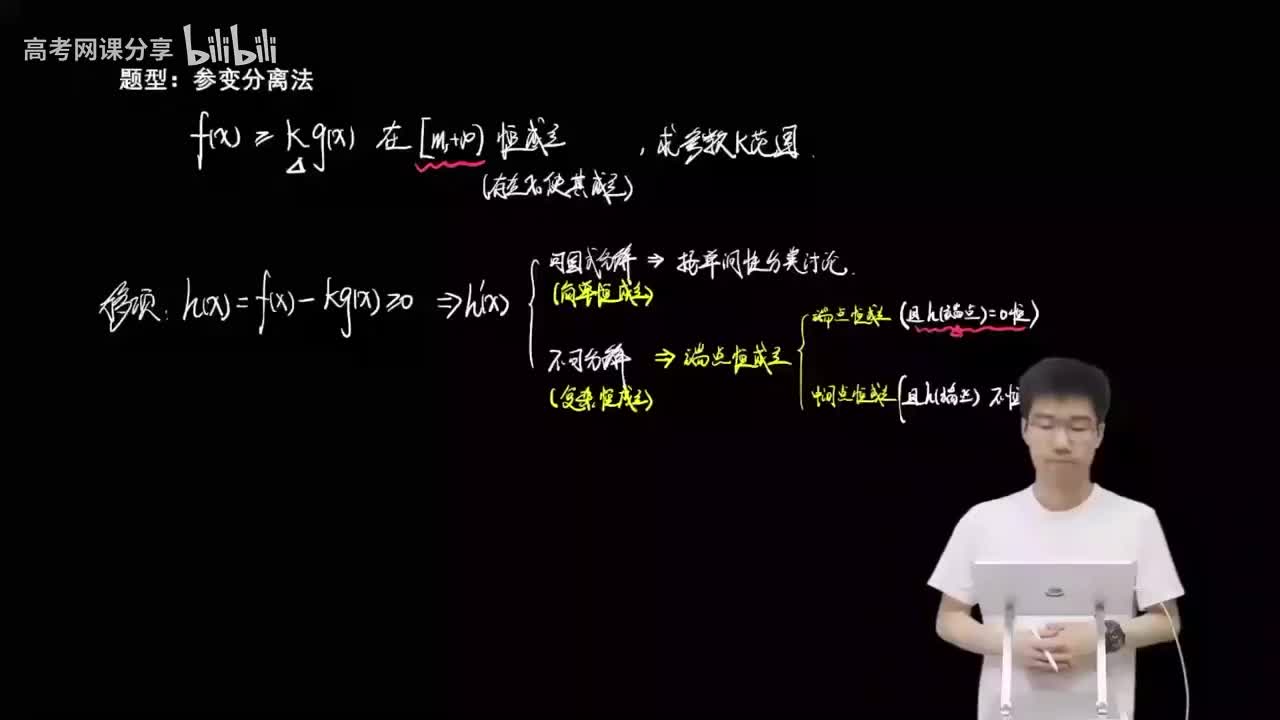 高考网课分享 bilibili
题型：参变分离法
f(x) ≥ kg(x) 在 [m,+∞) 恒成立，求参数k范围.
(存在x0使其成立)
移项: h(x) = f(x) - kg(x) ≥ 0 ⇒ h'(x)
可因式分解 ⇒ 按单调性分类讨论.
(简单恒成立)
不可分解 ⇒ 端点恒成立
(复杂恒成立)
端点恒成立 (且h(端点)=0恒)
中间点恒成立 (且h(端点) 不恒